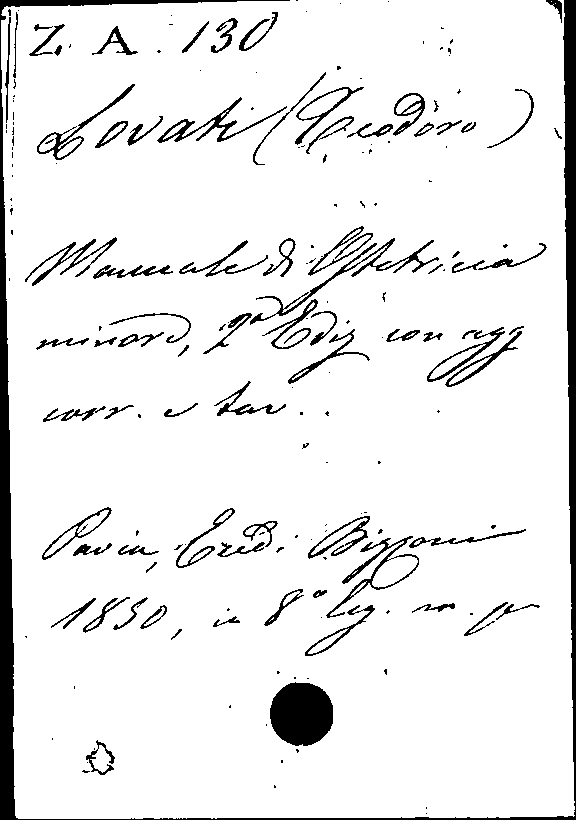 Z. A. 130
Lovati (Teodoro)
Manuale di Ostetricia
minore, 2ª Ediz con agg
corr. e tav..
Pavia, Eredi Bizzoni
1850, in 8° leg. m. p